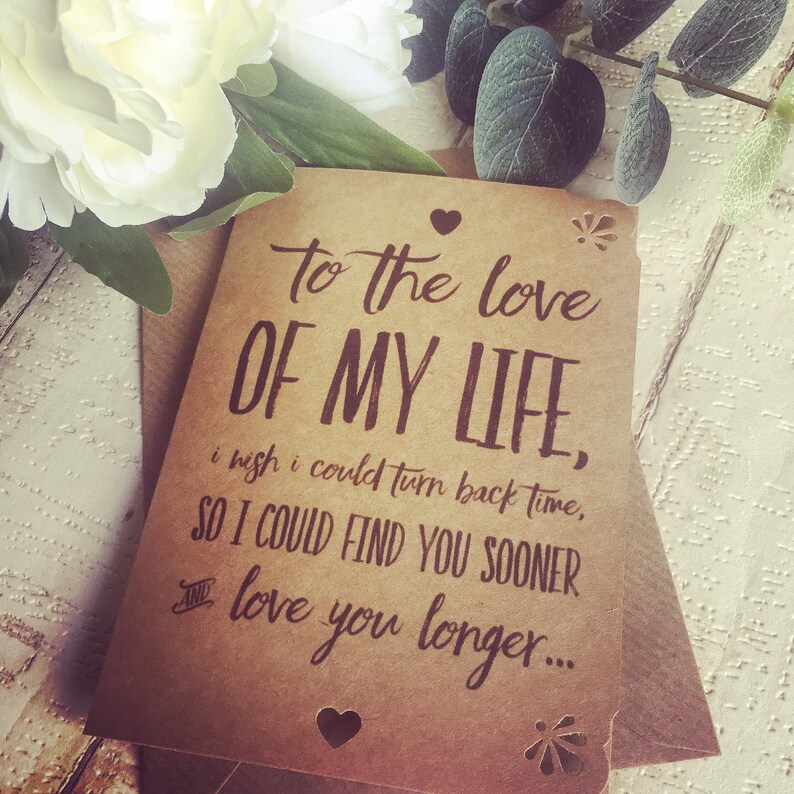 to the love
OF MY LIFE,
i wish i could turn back time,
SO I COULD FIND YOU SOONER
AND love you longer...